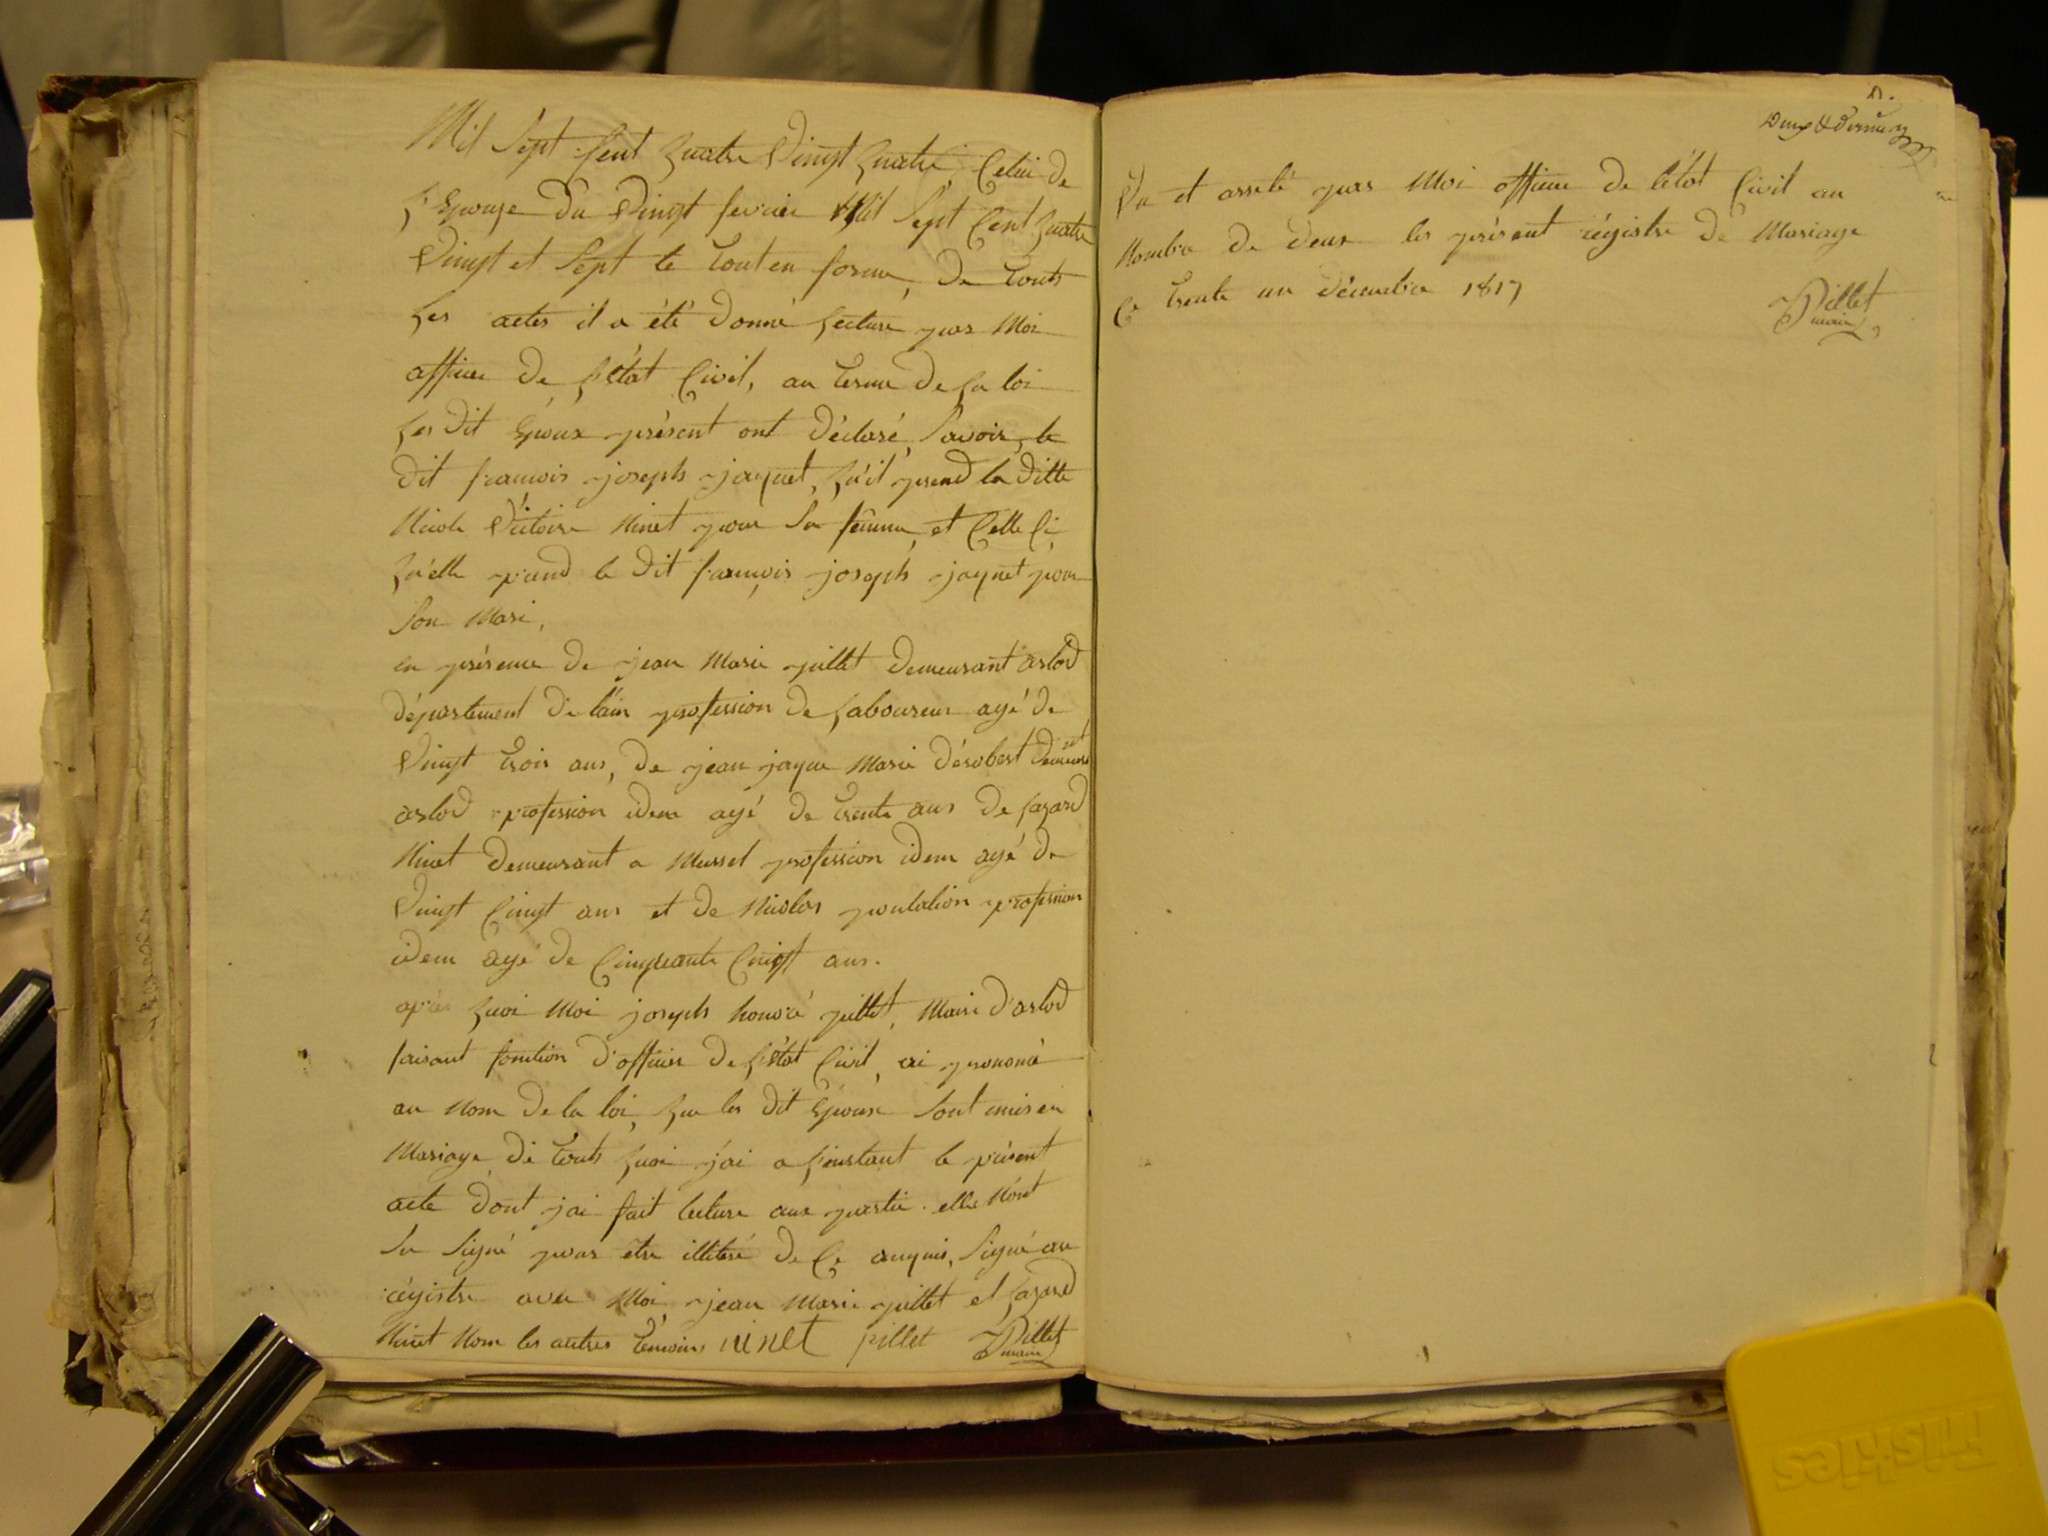 Mil Sept Cent quatre Vingt quatre Celui de
L'Epouse du Vingt fevrier Mil Sept Cent quatre
Vingt et Sept le tout en forme, de touts
Les actes il a été donné Lecture par Moi
officier de L'état Civil, au terme de La loi
Les dit Epoux présent ont déclaré, Savoir, le
dit francois joseph jaquet, qu'il prend la ditte
Nicole Victoire Ninet pour Sa femme, et Celle Ci
qu'elle prend le dit francois joseph jaquet pour
Son Mari,
en présence de jean Marie pillet demeurant arlod
département de l'ain profession de Laboureur agé de
Vingt trois ans, de jean jaque Marie dérobert demeurant
arlod profession idem agé de trente ans de Lazard
Ninet demeurant a Mussel profession idem agé de
Vingt Cinqt ans et de Nicolas profession
idem agé de Cinquante Cinqt ans.
après quoi Moi joseph honoré pillet, Maire d'arlod
faisant fonction d'officier de L'état Civil, ai prononcé
au Nom de la loi, que les dit Epoux Sont unis en
Mariage, de touts quoi j'ai a L'instant le présent
acte dont j'ai fait lecture aux partie. elle N'ont
Su Signé pour etre illitéré de Ce anquis, Signé au
régistre avec Moi, jean Marie pillet et Lazard
Ninet Nom les autres témoins ninet pillet Pillet
maire
n.
Deux & dernier
Vu et arreté par Moi officier de l'état Civil au
Nombre de deux les présent régistre de Mariage
Ce trente un décembre 1817
Pillet
maire
friskies